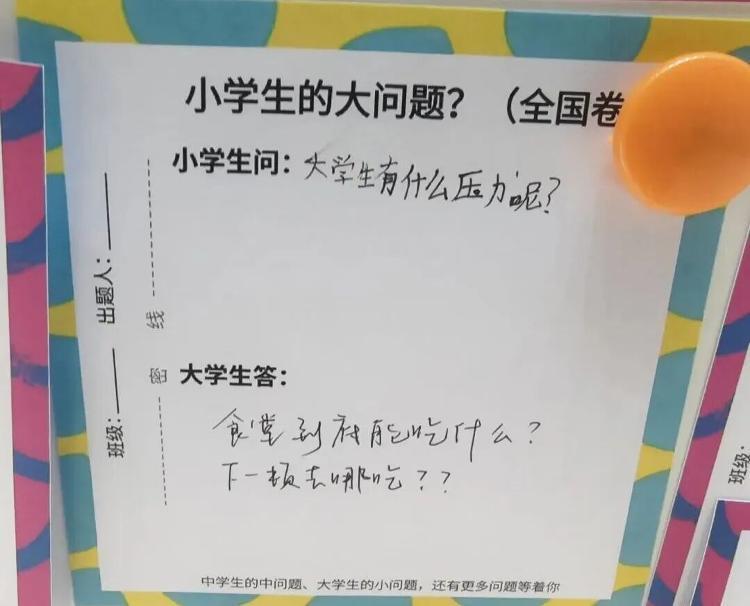 小学生的大问题？（全国卷
小学生问：大学生有什么压力呢？
出题人：
班级：
线
密
大学生答：
食堂到府能吃什么？
下一顿去哪吃？？
中学生的中问题、大学生的小问题，还有更多问题等着你
班级：